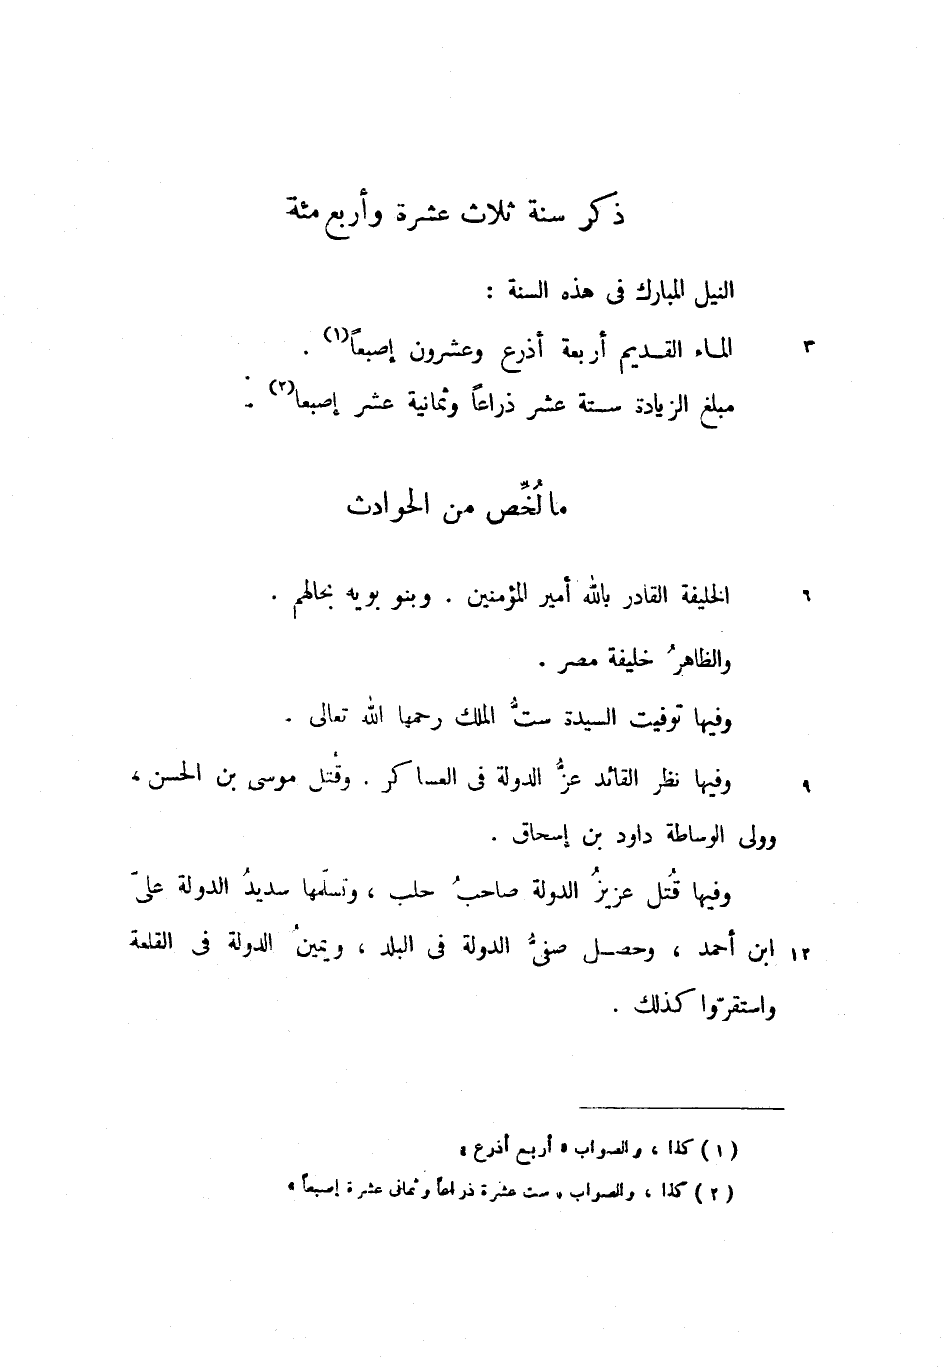 ذكر سنة ثلاث عشرة وأربع مئة
النيل المبارك فى هذه السنة :
٣ الماء القديم أربعة أذرع وعشرون إصبعاً(١) .
مبلغ الزيادة ستة عشر ذراعاً وثمانية عشر إصبعا(٢) .
ما لُخِّص من الحوادث
٦ الخليفة القادر بالله أمير المؤمنين . وبنو بويه بحالهم .
والظاهرُ خليفة مصر .
وفيها توفيت السيدة ستُّ الملك رحمها الله تعالى .
٩ وفيها نظر القائد عزُّ الدولة فى العساكر . وقُتل موسى بن الحسن ،
وولى الوساطة داود بن إسحاق .
وفيها قُتل عزيزُ الدولة صاحبُ حلب ، وتسلّمها سديدُ الدولة علىّ
١٢ ابن أحمد ، وحصل صفىُّ الدولة فى البلد ، ويمينُ الدولة فى القلعة
واستقرّوا كذلك .
(١) كذا ، والصواب « أربع أذرع »
(٢) كذا ، والصواب « ست عشرة ذراعاً وثمانى عشرة إصبعاً »